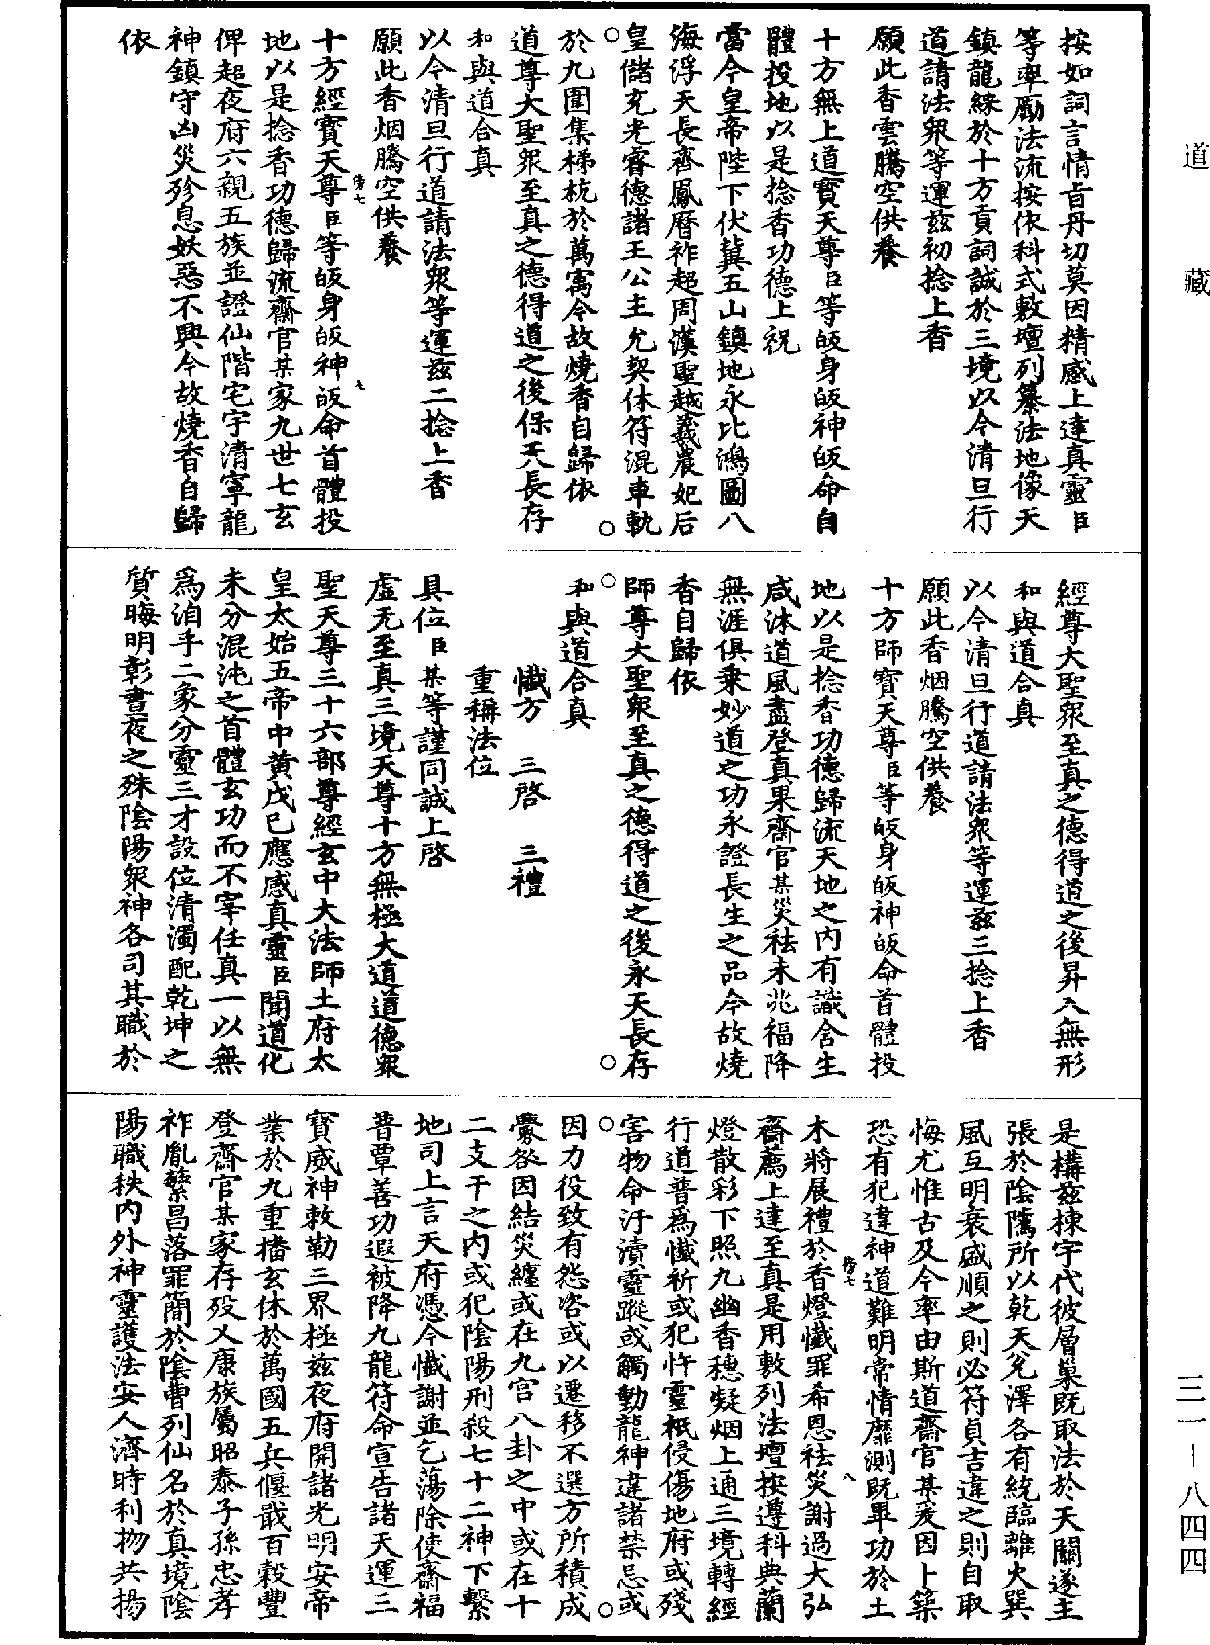 道藏
三一－八四四
按如詞言情旨丹切莫因精感上達真靈臣
等率勵法流按依科式敷壇列纂法地像天
鎮龍緣於十方貢詞誠於三境以今清旦行
道請法衆等運茲初捻上香
願此香雲騰空供養
十方無上道寳天尊臣等皈身皈神皈命自
體投地以是捻香功德上祝
當今皇帝陛下伏冀五山鎮地永比鴻圖八
海浮天長齊鳳曆祚超周漢聖越羲農妃后
皇儲充光睿德諸王公主允契休符混車軌
於九圍集梯杭於萬寓今故燒香自歸依
道尊大聖衆至真之德得道之後保天長存
和與道合真
以今清旦行道請法衆等運茲二捻上香
願此香烟騰空供養
十方經寳天尊臣等皈身皈神皈命首體投
地以是捻香功德歸流齋官某家九世七玄
俾超夜府六親五族並證仙階宅宇清寧龍
神鎮守凶災殄息妖惡不興今故燒香自歸
依
經尊大聖衆至真之德得道之後昇入無形
和與道合真
以今清旦行道請法衆等運茲三捻上香
願此香烟騰空供養
十方師寳天尊臣等皈身皈神皈命首體投
地以是捻香功德歸流天地之內有識含生
咸沐道風盡登真果齋官某災袪未兆福降
無涯俱乗妙道之功永證長生之品今故燒
香自歸依
師尊大聖衆至真之德得道之後永天長存
和與道合真
懺方　三啓　三禮
重稱法位
具位臣某等謹同誠上啓
虛无至真三境天尊十方無極大道道德衆
聖天尊三十六部尊經玄中大法師土府太
皇太始五帝中黄戊己應感真靈臣聞道化
未分混沌之首體玄功而不宰任真一以無
爲洎乎二象分靈三才設位清濁配乾坤之
質晦明彰晝夜之殊陰陽衆神各司其職於
是構茲棟宇代彼層巢既取法於天關遂主
張於陰隲所以乾天兊澤各有統臨離火巽
風互明衰盛順之則必符貞吉違之則自取
悔尤惟古及今率由斯道齋官某爰因卜築
恐有犯違神道難明常情靡測既畢功於土
木將展禮於香燈懺罪希恩袪災謝過大弘
齋薦上達至真是用敷列法壇按遵科典蘭
燈散彩下照九幽香穗凝烟上通三境轉經
行道普爲懺祈或犯忤靈祇侵傷地府或殘
害物命汙瀆靈蹤或觸動龍神違諸禁忌或
因力役致有怨咨或以遷移不選方所積成
釁咎因結災纏或在九宮八卦之中或在十
二支干之内或犯陰陽刑殺七十二神下繫
地司上言天府憑今懺謝並乞蕩除使齋福
普覃善功遐被降九龍符命宣告諸天運三
寳威神敕勒三界極茲夜府開諸光明安帝
業於九重播玄休於萬國五兵偃戢百穀豐
登齋官某家存殁乂康族屬昭泰子孫忠孝
祚胤繁昌落罪簡於陰曹列仙名於真境陰
陽職秩内外神靈護法安人濟時利物共揚